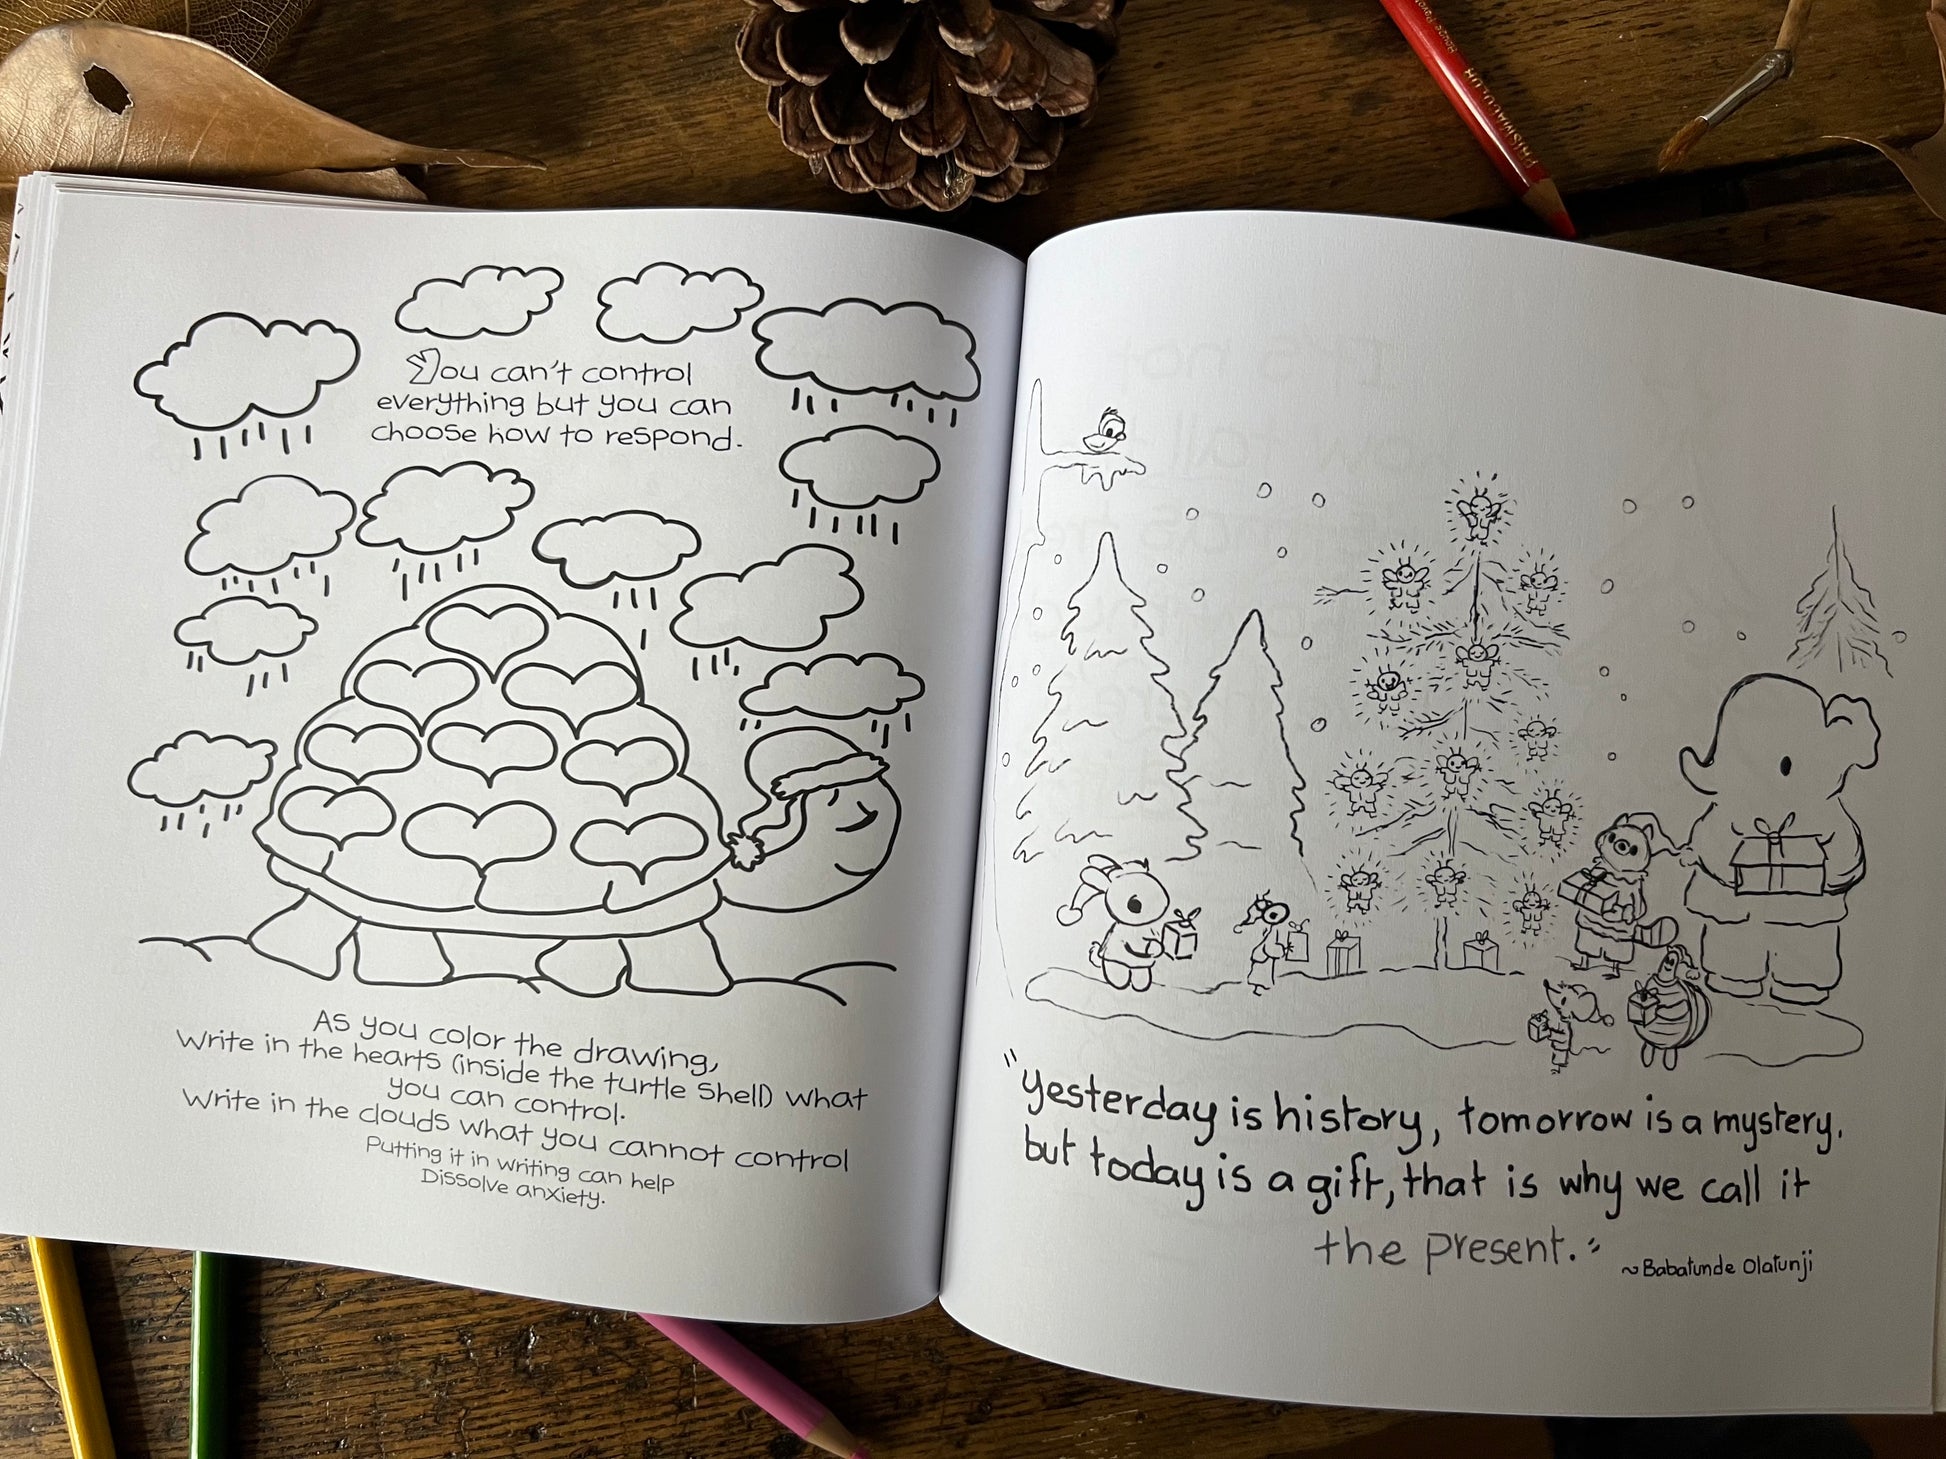 You can't control
everything but you can
choose how to respond.
As you color the drawing,
Write in the hearts (inside the turtle shell) what
you can control.
Write in the clouds what you cannot control
Putting it in writing can help
Dissolve anxiety.
"Yesterday is history, tomorrow is a mystery.
but today is a gift, that is why we call it
the present."
~Babatunde Olatunji
PRISMACOLOR